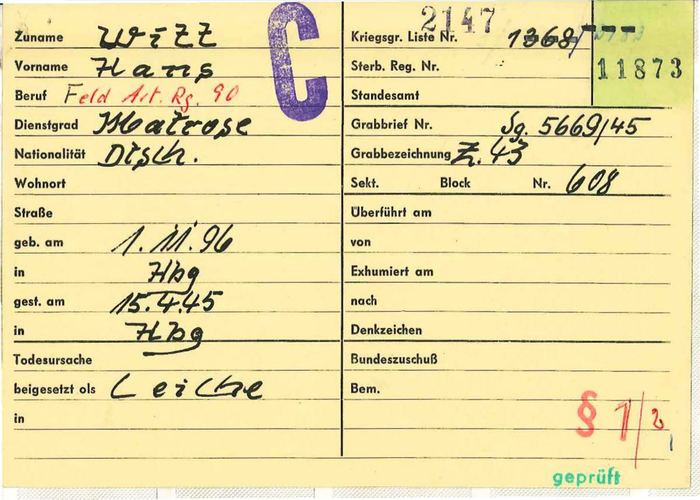 Zuname Witt
Vorname Hans
Beruf Feld Art. Rg. 90
Dienstgrad Matrose
Nationalität Dtsch.
Wohnort
Straße
geb. am 1. 11. 96
in Hbg
gest. am 15.4.45
in Hbg
Todesursache
beigesetzt als Leiche
in
C
2147
Kriegsgr. Liste Nr. 1368
11873
Sterb. Reg. Nr.
Standesamt
Grabbrief Nr. Sg. 5669/45
Grabbezeichnung Z. 43
Sekt. Block Nr. 608
Überführt am
von
Exhumiert am
nach
Denkzeichen
Bundeszuschuß
Bem.
§ 1/2
geprüft